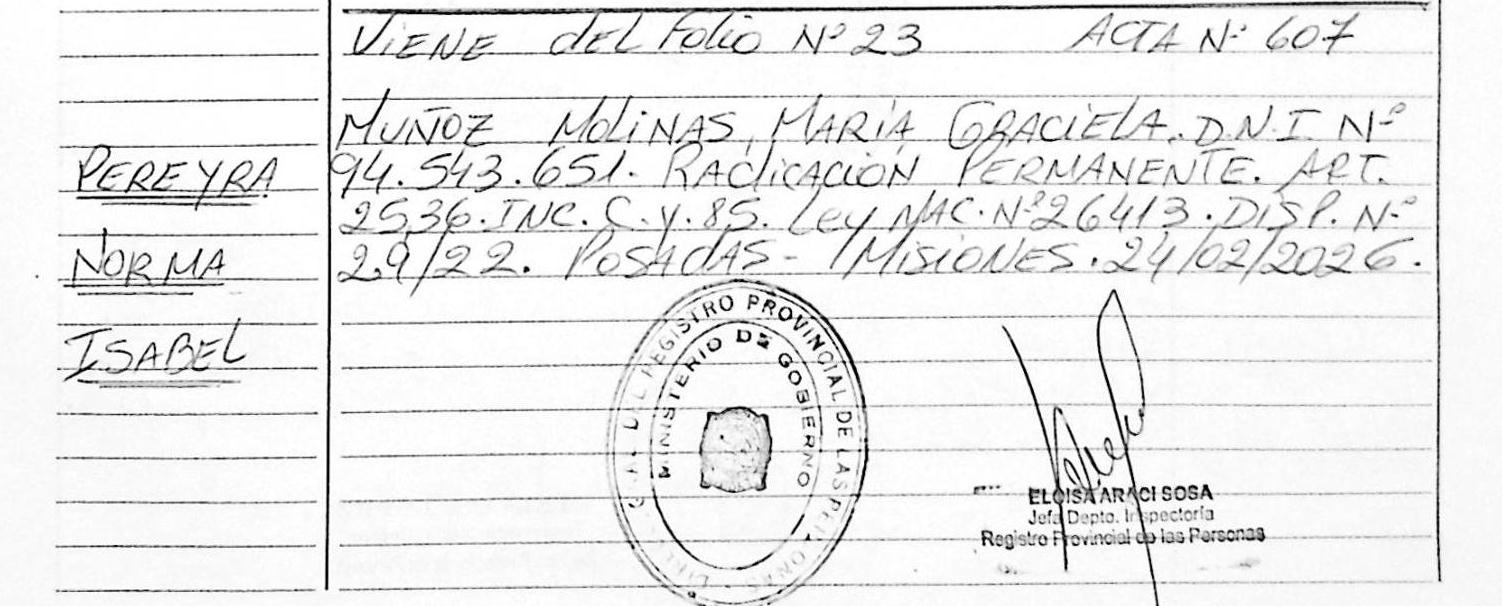 VIENE del Folio Nº 23 ACTA Nº 607
MUÑOZ MOLINAS, MARÍA GRACIELA. D.N.I Nº
94.543.651. RADICACIÓN PERMANENTE. ART.
2536. INC. C. y. 85. Ley NAC. Nº 26413. DISP. Nº
29/22. POSADAS - MISIONES. 24/02/2026.
PEREYRA
NORMA
ISABEL
REGISTRO PROVINCIAL DE LAS PERSONAS
MINISTERIO DE GOBIERNO
ELOISA ARACI SOSA
Jefa Depto. Inspectoría
Registro Provincial de las Personas